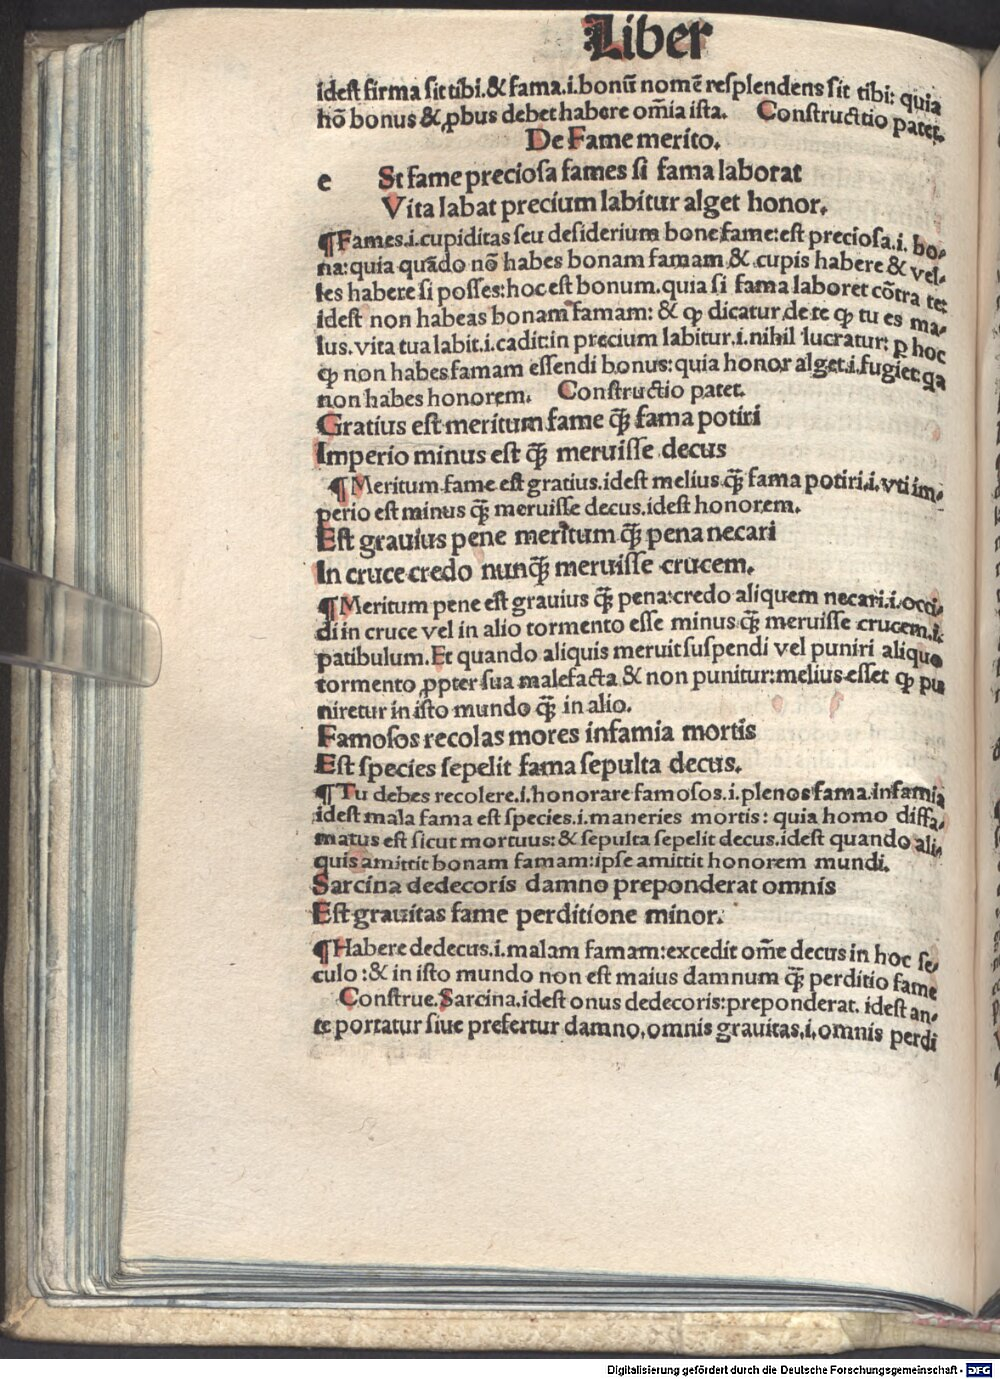 Liber
idest firma sit tibi. & fama.i.bonū nomē resplendens sit tibi: quia
hō bonus & ꝓbus debet habere om̄ia ista. Constructio patet.
De Fame merito.
e St fame preciosa fames si fama laborat
Vita labat precium labitur alget honor.
¶Fames.i.cupiditas seu desiderium bone fame:est preciosa.i. bo-
na:quia quādo nō habes bonam famam & cupis habere & vel-
les habere si posses:hoc est bonum.quia si fama laboret cōtra te:
idest non habeas bonam famam: & ꝙ dicatur de te ꝙ tu es ma-
lus.vita tua labit.i.cadit:in precium labitur.i.nihil lucratur: ꝑ hoc
ꝙ non habes famam essendi bonus:quia honor alget.i.fugiet:qa
non habes honorem. Constructio patet.
Gratius est meritum fame ꝙ̄ fama potiri
Imperio minus est ꝙ̄ meruisse decus
¶Meritum fame est gratius.idest melius ꝙ̄ fama potiri.i.vti im-
perio est minus ꝙ̄ meruisse decus.idest honorem.
Est grauius pene meritum ꝙ̄ pena necari
In cruce credo nunꝙ̄ meruisse crucem.
¶Meritum pene est grauius ꝙ̄ pena:credo aliquem necari.i.occi-
di in cruce vel in alio tormento esse minus ꝙ̄ meruisse crucem.i.
patibulum.Et quando aliquis meruit suspendi vel puniri aliquo
tormento ꝓpter sua malefacta & non punitur:melius esset ꝙ pu
niretur in isto mundo ꝙ̄ in alio.
Famosos recolas mores infamia mortis
Est species sepelit fama sepulta decus.
¶Tu debes recolere.i.honorare famosos.i.plenos fama.infamia
idest mala fama est species.i.maneries mortis: quia homo diffa-
matus est sicut mortuus:& sepulta sepelit decus.idest quando ali-
quis amittit bonam famam:ipse amittit honorem mundi.
Sarcina dedecoris damno preponderat omnis
Est grauitas fame perditione minor.
¶Habere dedecus.i.malam famam:excedit om̄e decus in hoc se-
culo:& in isto mundo non est maius damnum ꝙ̄ perditio fame
Construe.Sarcina.idest onus dedecoris:preponderat. idest an-
te portatur siue prefertur damno,omnis grauitas.i.omnis perdi
Digitalisierung gefördert durch die Deutsche Forschungsgemeinschaft - DFG